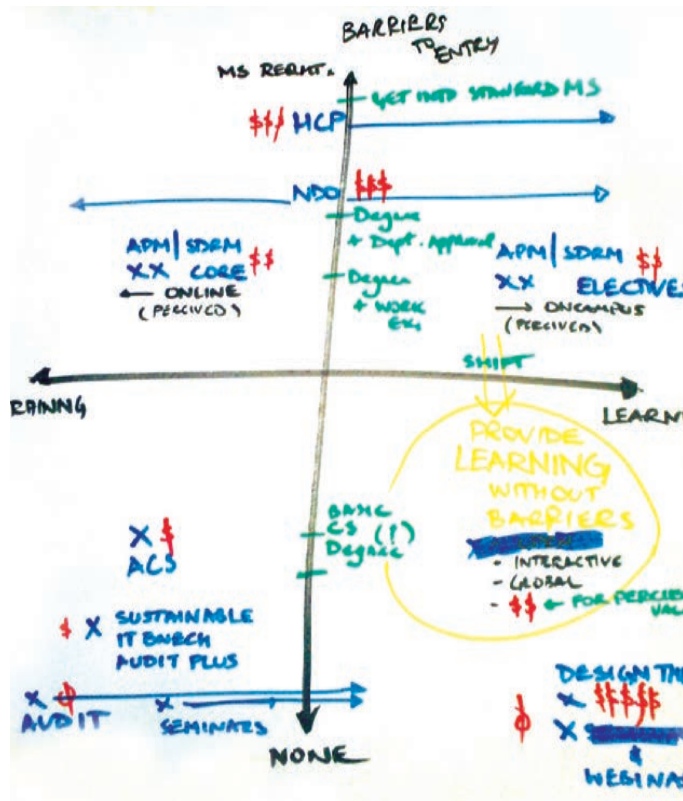 BARRIERS
TO
ENTRY
MS REQMT.
GET INTO STANDARD MS
$$$ HCP
NDO $$$
Degree
+ Dept. Approval
APM/SDRM
XX CORE $$
← ONLINE
(PERCIVED)
Degree
+ WORK
EX,
APM/SDRM $$
XX ELECTIVES
→ ONCAMPUS
(PERCIVED)
SHIFT
RAINNG
LEARNI
PROVIDE
LEARNING
WITHOUT
BARRIERS
X
- INTERACTIVE
- GLOBAL
- $$ ← FOR PERCIEV
VAL
BASIC
CS (!)
Degree
X $
ACS
$ X SUSTAINABLE
IT BNECH
AUDIT PLUS
X
AUDIT
X
SEMINARS
NONE
DESIGN
X $$$$$
X
&
WEBINA